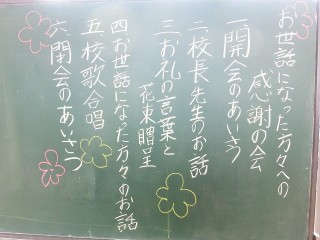 お世話になった方々への
感謝の会
一、開会のあいさつ
二、校長先生のお話
三、お礼の言葉と
花束贈呈
四、お世話になった方々のお話
五、校歌合唱
六、閉会のあいさつ